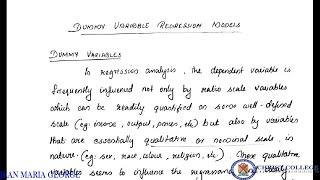 DUMMY VARIABLE REGRESSION MODELS
DUMMY VARIABLES
In regression analysis, the dependent variable is
frequently influenced not only by ratio scale variables
which can be readily quantified on some well-defined
scale (eg: income, output, prices, etc) but also by variables
that are essentially qualitative or nominal scale, in
nature. (eg: sex, race, colour, religion, etc) These qualitative
variables seems to influence the regressand
MARIA GEORGE
CHRIST COLLEGE